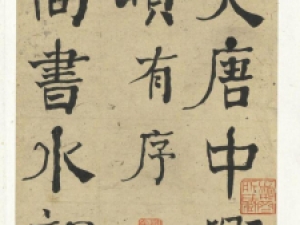 大唐中興
頌有序
尚書水部